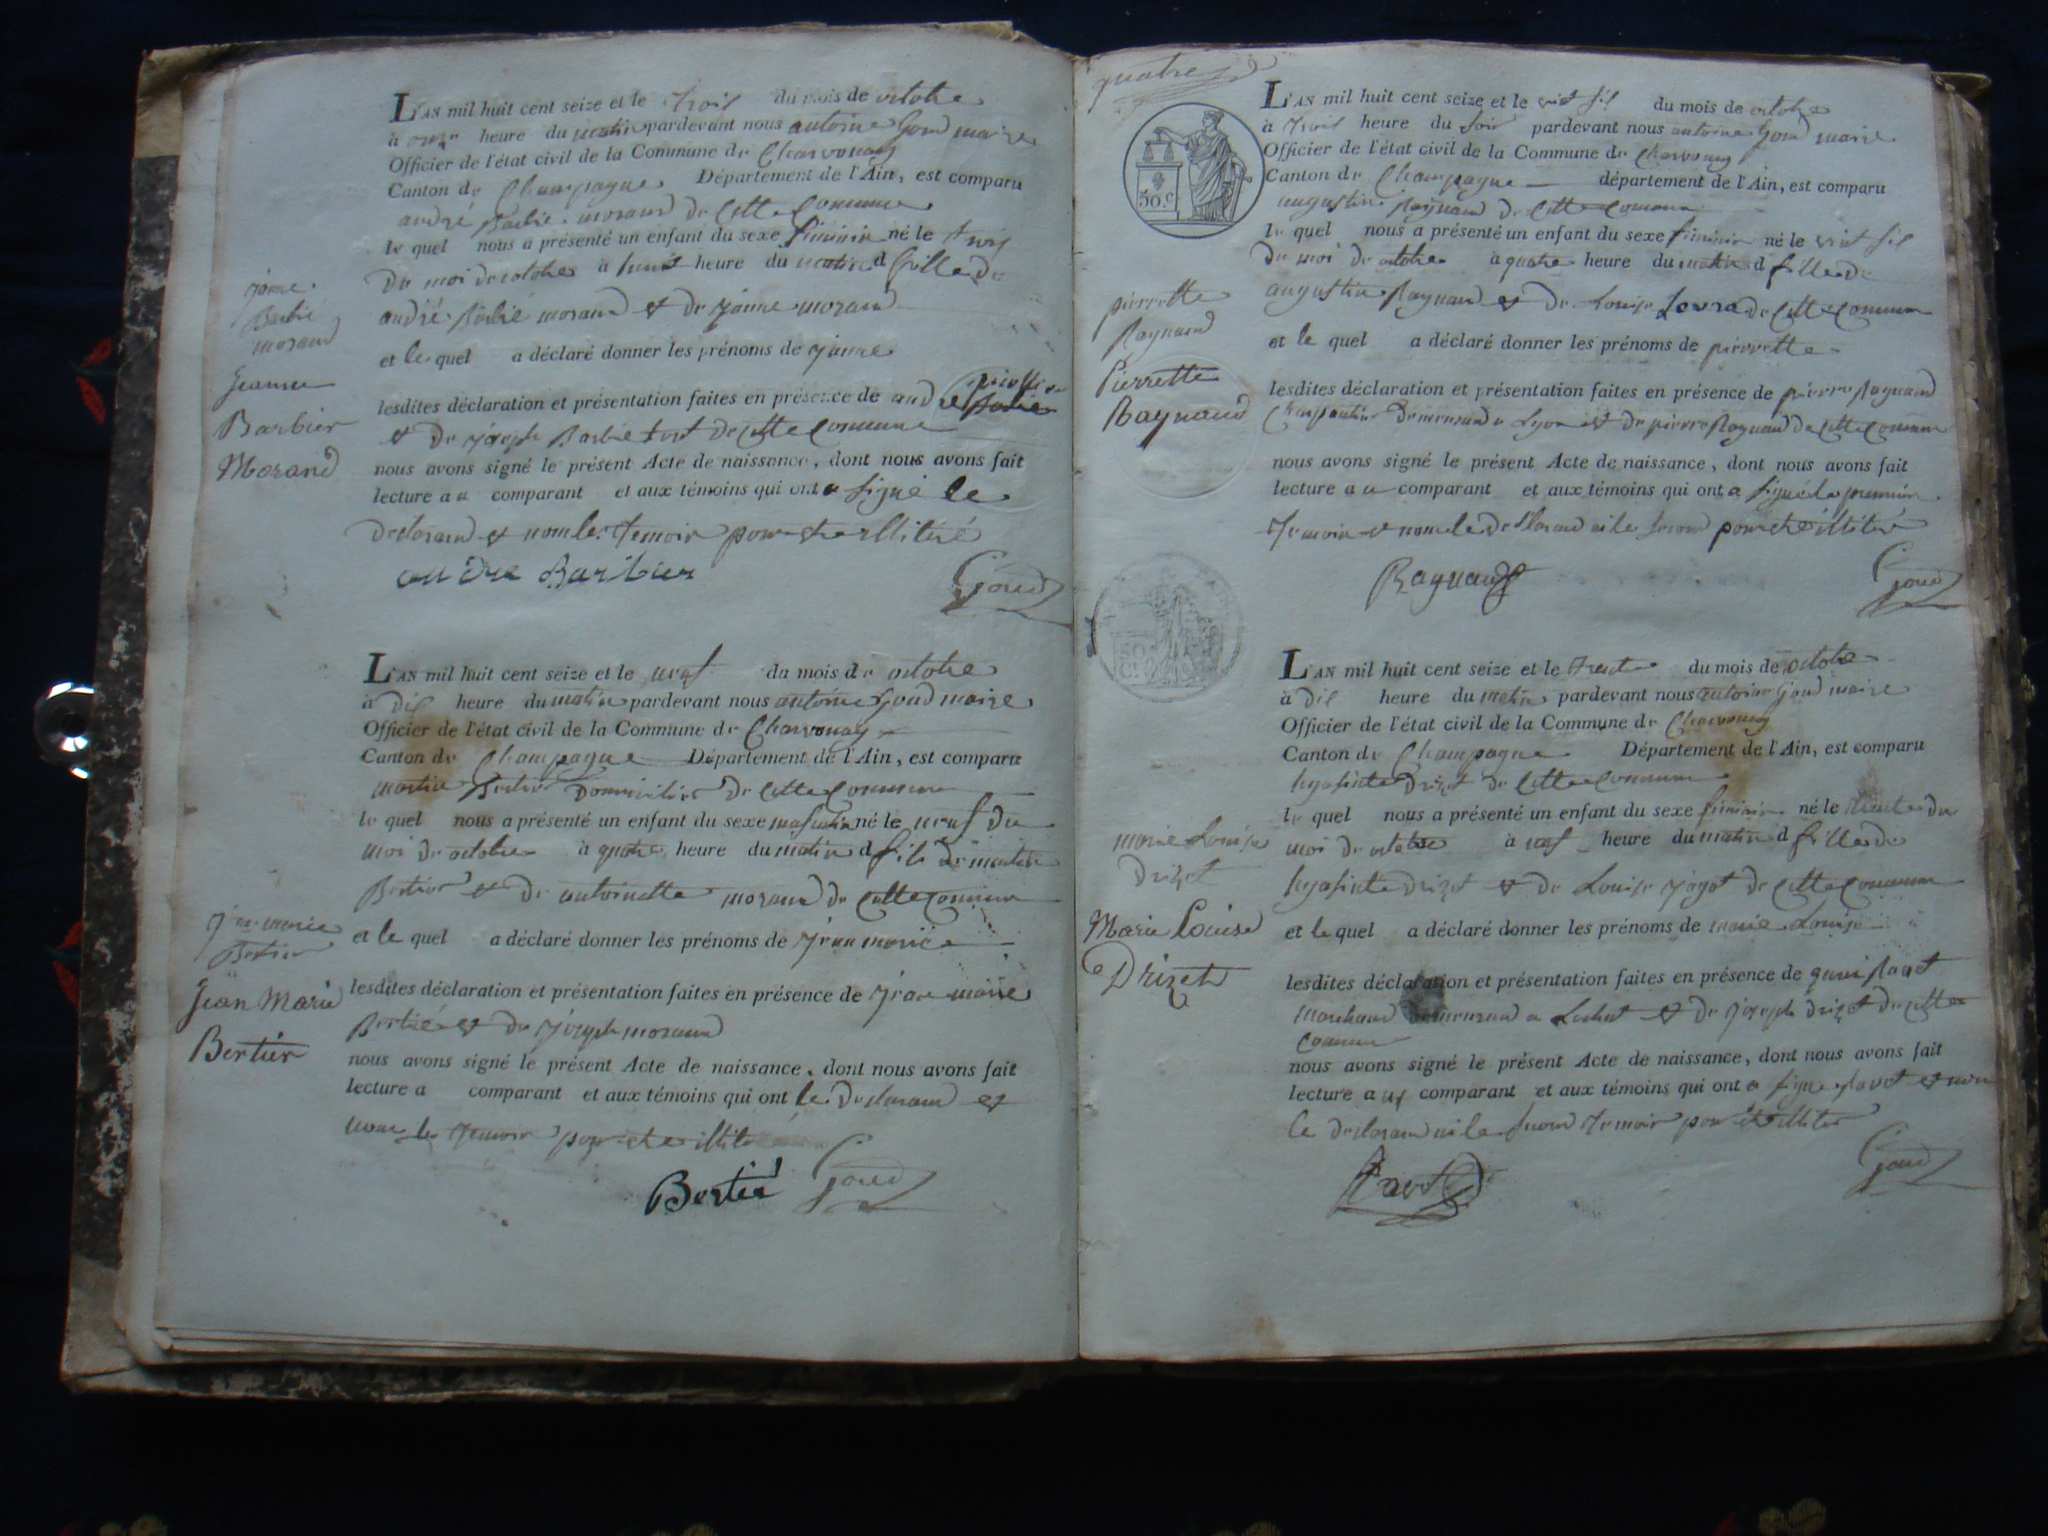 L'AN mil huit cent seize et le trois du mois de octobre
à onze heure du matin pardevant nous antoine Goud maire
Officier de l'état civil de la Commune de Charvonay
Canton de Champagne Département de l'Ain, est comparu
andré Barbié morand de Cette Commune
le quel nous a présenté un enfant du sexe féminin né le trois
du moi de octobre à heure du matin d fille de
andré Barbié morand et de janne morand
et le quel a déclaré donner les prénoms de janne
lesdites déclaration et présentation faites en présence de andré
et de joseph Barbié tout de Cette Commune
nous avons signé le présent Acte de naissance, dont nous avons fait
lecture a u comparant et aux témoins qui ont a signé le
declarand et non les temoin pour etre illitiré
andre Barbier Goud
janne
Barbié
morand
Jeanne
Barbier
Morand
L'AN mil huit cent seize et le neuf du mois de octobre
à dix heure du matin pardevant nous antoine Goud maire
Officier de l'état civil de la Commune de Charvonay
Canton de Champagne Département de l'Ain, est comparu
martin Bertier Domicilier de Cette Commune
le quel nous a présenté un enfant du sexe masculin né le neuf du
moi de octobre à quatre heure du matin d fils de martin
Bertier et de antoinette morand de Cette Commune
et le quel a déclaré donner les prénoms de jean marie
lesdites déclaration et présentation faites en présence de jean marie
Bertié et de joseph morand
nous avons signé le présent Acte de naissance, dont nous avons fait
lecture a comparant et aux témoins qui ont le declarand et
non les temoin pour etre illitiré
Bertié Goud
jean marie
Bertier
Jean Marie
Bertier
quatre
50.C
L'AN mil huit cent seize et le vint six du mois de octobre
à trois heure du soir pardevant nous antoine Goud maire
Officier de l'état civil de la Commune de Charvonay
Canton de Champagne département de l'Ain, est comparu
augustin Raynaud de Cette Commune
le quel nous a présenté un enfant du sexe féminin né le vint six
du moi de octobre à quatre heure du matin d fille de
augustin Raynaud et de Louise de Cette Commune
et le quel a déclaré donner les prénoms de pierrette
lesdites déclaration et présentation faites en présence de pierre Raynaud
Charpantier demeurand a Lyon et de pierre Raynaud de Cette Commune
nous avons signé le présent Acte de naissance, dont nous avons fait
lecture a u comparant et aux témoins qui ont a signé le premier
temoin et non le declarand ni le second pour etre illitiré
Raynaud Goud
pierrette
Raynaud
Pierrette
Raynaud
L'AN mil huit cent seize et le trente du mois de octobre
à dix heure du matin pardevant nous antoine Goud maire
Officier de l'état civil de la Commune de Charvonay
Canton de Champagne Département de l'Ain, est comparu
hyasinte drizet de Cette Commune
le quel nous a présenté un enfant du sexe féminin né le trente du
moi de octobre à neuf heure du matin d fille de
hyasinte drizet et de Louise de Cette Commune
et le quel a déclaré donner les prénoms de marie Louise
lesdites déclaration et présentation faites en présence de
marchand demeurand a et de joseph drizet de Cette
Commune
nous avons signé le présent Acte de naissance, dont nous avons fait
lecture a u comparant et aux témoins qui ont a signé et non
le declarand ni le second temoin pour etre illitiré
Goud
marie Louise
drizet
Marie Louise
Drizet